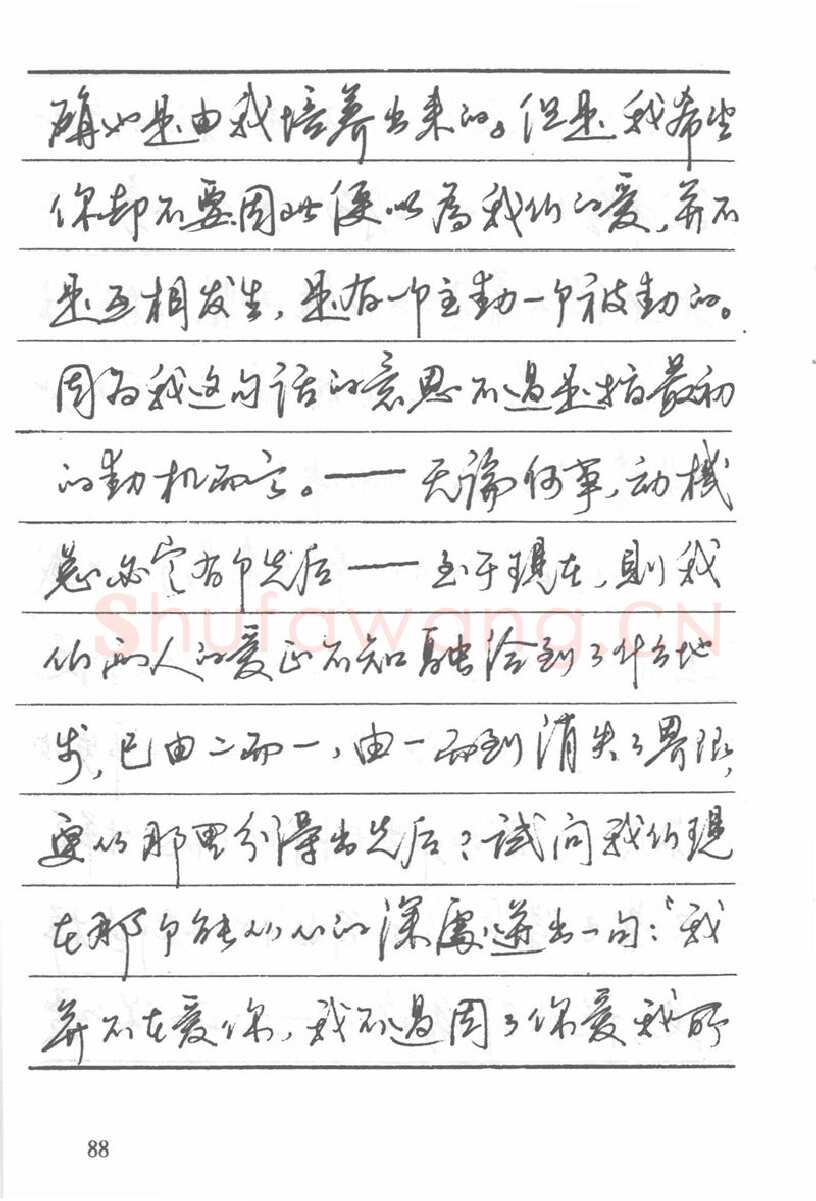 确如是由我培养出来的。但是我希望
你却不要因此便以為我们的爱,并不
是互相发生,是有一个主動一个被動的。
因为我这句话的意思不過是指最初
的動机而言。——无論何事,动機
总必定有个先后——至于現在,則我
们两人的爱正不知融洽到了什么地
步,已由二而一,由一而到消失了界限,
要从那里分得出先后?试问我们现
在那个能从心的深處迸出一句:「我
并不在爱你,我不過因了你爱我所
Shufawang.CN
88